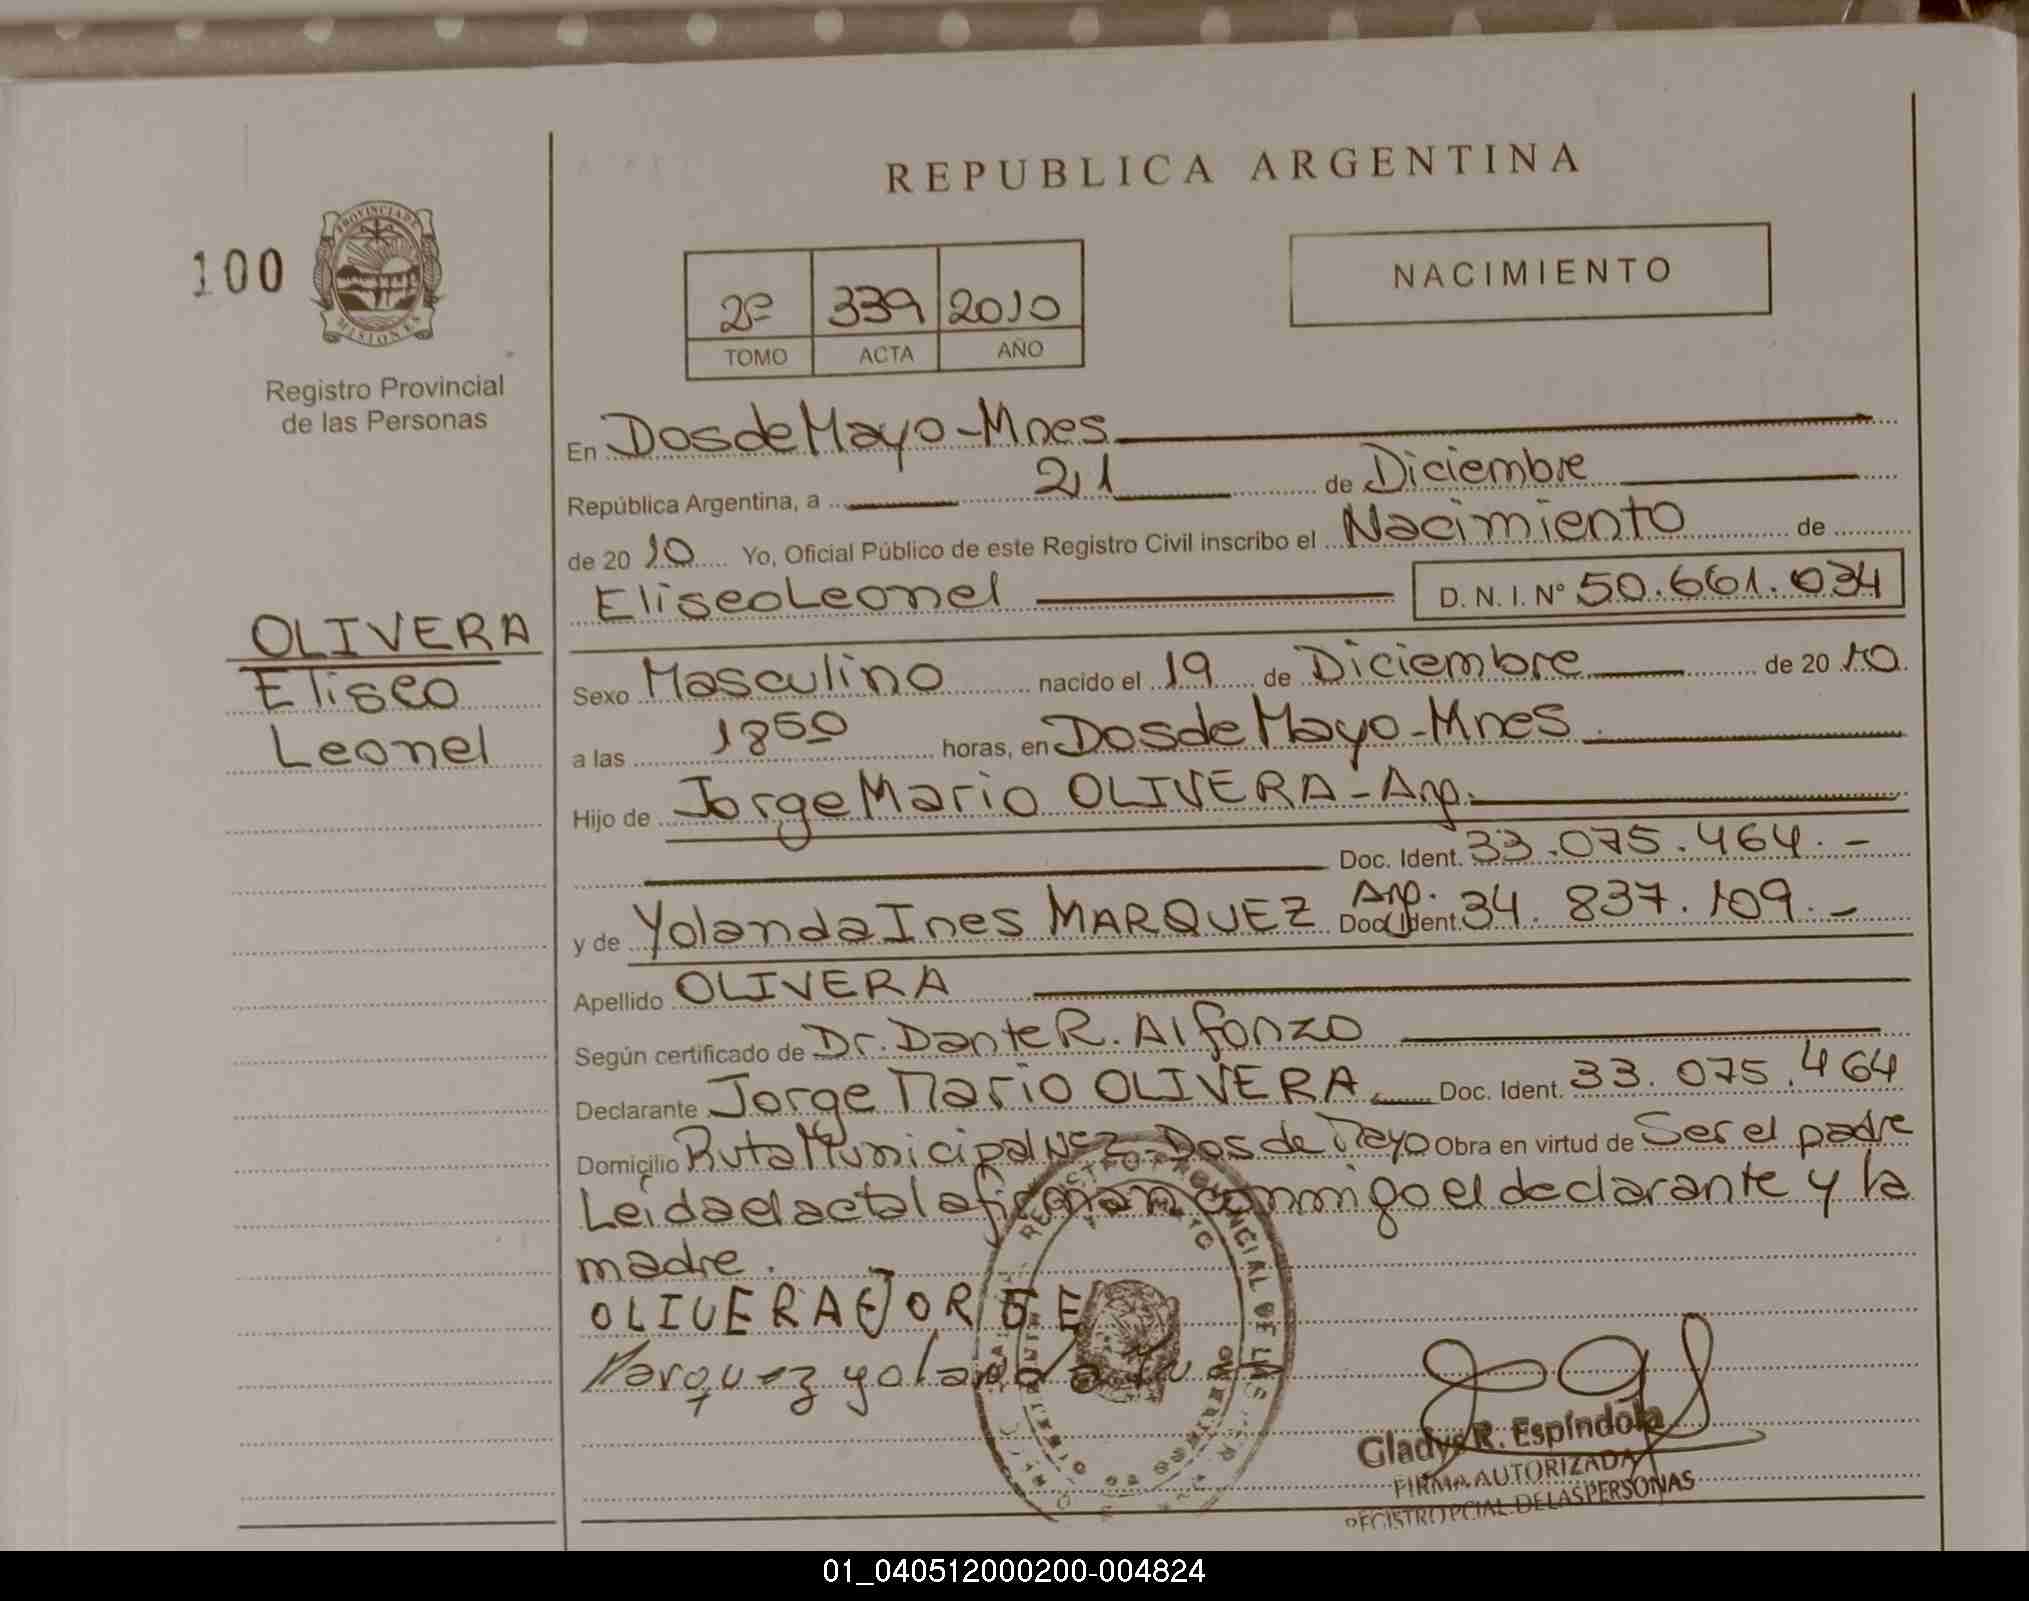 REPUBLICA ARGENTINA
100
PROVINCIA DE
MISIONES
Registro Provincial
de las Personas
NACIMIENTO
2º 339 2010
TOMO ACTA AÑO
OLIVERA
Eliseo
Leonel
En Dos de Mayo - Mnes
República Argentina, a 21 de Diciembre
de 20 10 Yo, Oficial Público de este Registro Civil inscribo el Nacimiento de
Eliseo Leonel D. N. I. Nº 50.661.034
Sexo Masculino nacido el 19 de Diciembre de 20 10
a las 1850 horas, en Dos de Mayo - Mnes
Hijo de Jorge Mario OLIVERA - Arg.
Doc. Ident. 33.075.464.-
y de Yolanda Ines MARQUEZ Arg. Doc. Ident. 34.837.109.-
Apellido OLIVERA
Según certificado de Dr. Dante R. Alfonzo
Declarante Jorge Mario OLIVERA Doc. Ident. 33.075.464
Domicilio Ruta Municipal Nº 2 - Dos de Mayo Obra en virtud de Ser el padre
Leida el acta la firman conmigo el declarante y la
madre.
OLIVERA JORGE
Marquez yolanda
REGISTRO PROVINCIAL DE LAS
Gladys R. Espíndola
FIRMA AUTORIZADA
REGISTRO PCIAL. DE LAS PERSONAS
01_040512000200-004824